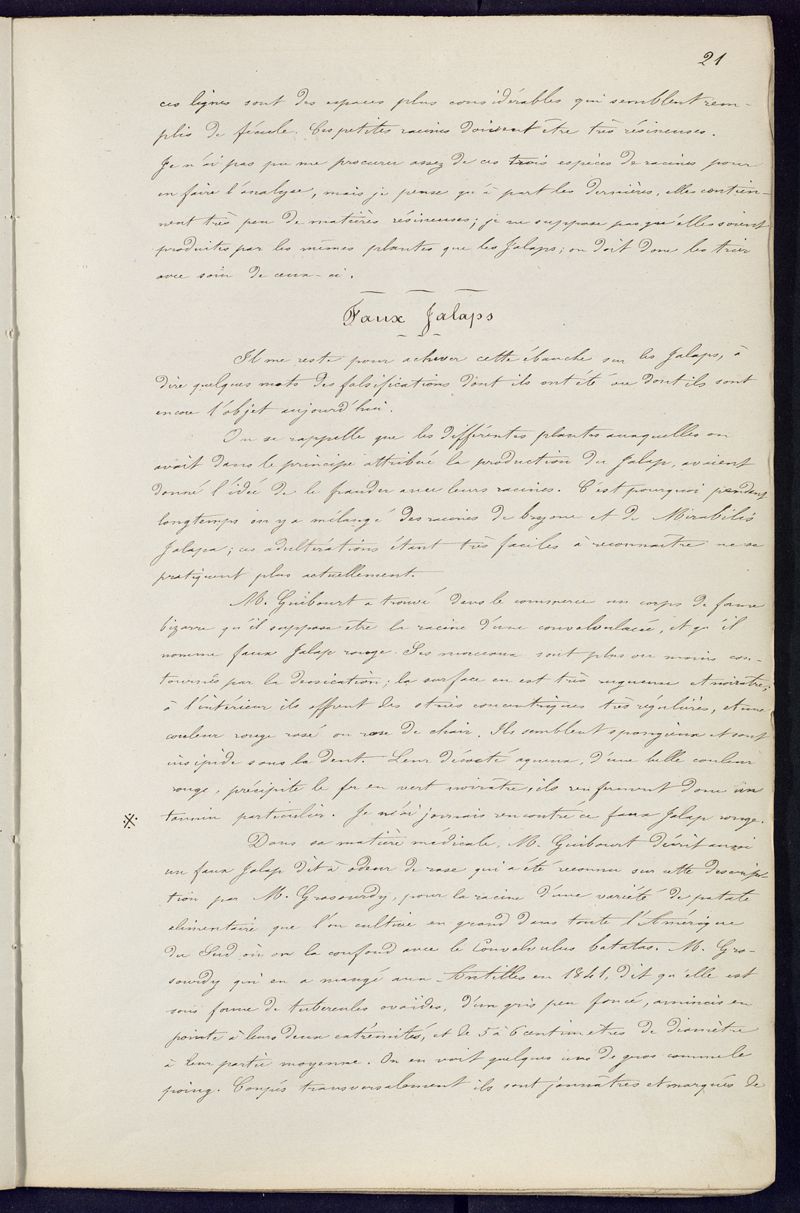 21
ces lignes sont des espaces plus considérables qui semblent rem-
plis de fécule. Ces petites racines doivent être très résineuses.
Je n'ai pas pu me procurer assez de ces trois espèces de racines pour
en faire l'analyse, mais je pense qu'à part les dernières, elles contien-
nent très peu de matières résineuses; je ne suppose pas qu'elles soient
produites par les mêmes plantes que les Jalaps; on doit donc les trier
avec soin de ceux-ci.
Faux Jalaps
Il me reste pour achever cette ébauche sur les Jalaps, à
dire quelques mots des falsifications dont ils ont été ou dont ils sont
encore l'objet aujourd'hui.
On se rappelle que les différentes plantes auxquelles on
avait dans le principe attribué la production du Jalap, avaient
donné l'idée de le frauder avec leurs racines. C'est pourquoi pendant
longtemps on y a mélangé des racines de bryone et de Mirabilis
Jalapa; ces adultérations étant très faciles à reconnaître ne se
pratiquent plus actuellement.
M. Guibourt a trouvé dans le commerce un corps de forme
bizarre qu'il suppose être la racine d'une convolvulacée, et qu'il
nomme faux Jalap rouge. Ses morceaux sont plus ou moins con-
tournés par la dessication; la surface en est très rugueuse et noirâtre;
à l'intérieur ils offrent des stries concentriques très régulières, et une
couleur rouge rosé ou rose de chair. Ils semblent spongieux et sont
insipide sous la dent. Leur décocté aqueux, d'une belle couleur
rouge, précipite le fer en vert noirâtre; ils renferment donc un
※ tannin particulier. Je n'ai jamais rencontré ce faux Jalap rouge.
Dans sa matière médicale, M. Guibourt décrit aussi
un faux Jalap dit à odeur de rose qui a été reconnu sur cette descrip-
tion par M. Grosourdy, pour la racine d'une variété de patate
alimentaire que l'on cultive en grand dans toute l'Amérique
du Sud où on la confond avec le Convolvulus batatas. M. Gro-
sourdy qui en a mangé aux Antilles en 1841, dit qu'elle est
sous forme de tubercules ovoïdes, d'un gris peu foncé, amincis en
pointe à leurs deux extrémités, et de 5 à 6 centimètres de diamètre
à leur partie moyenne. On en voit quelques uns de gros comme le
poing. Coupés transversalement ils sont jaunâtres et marqués de